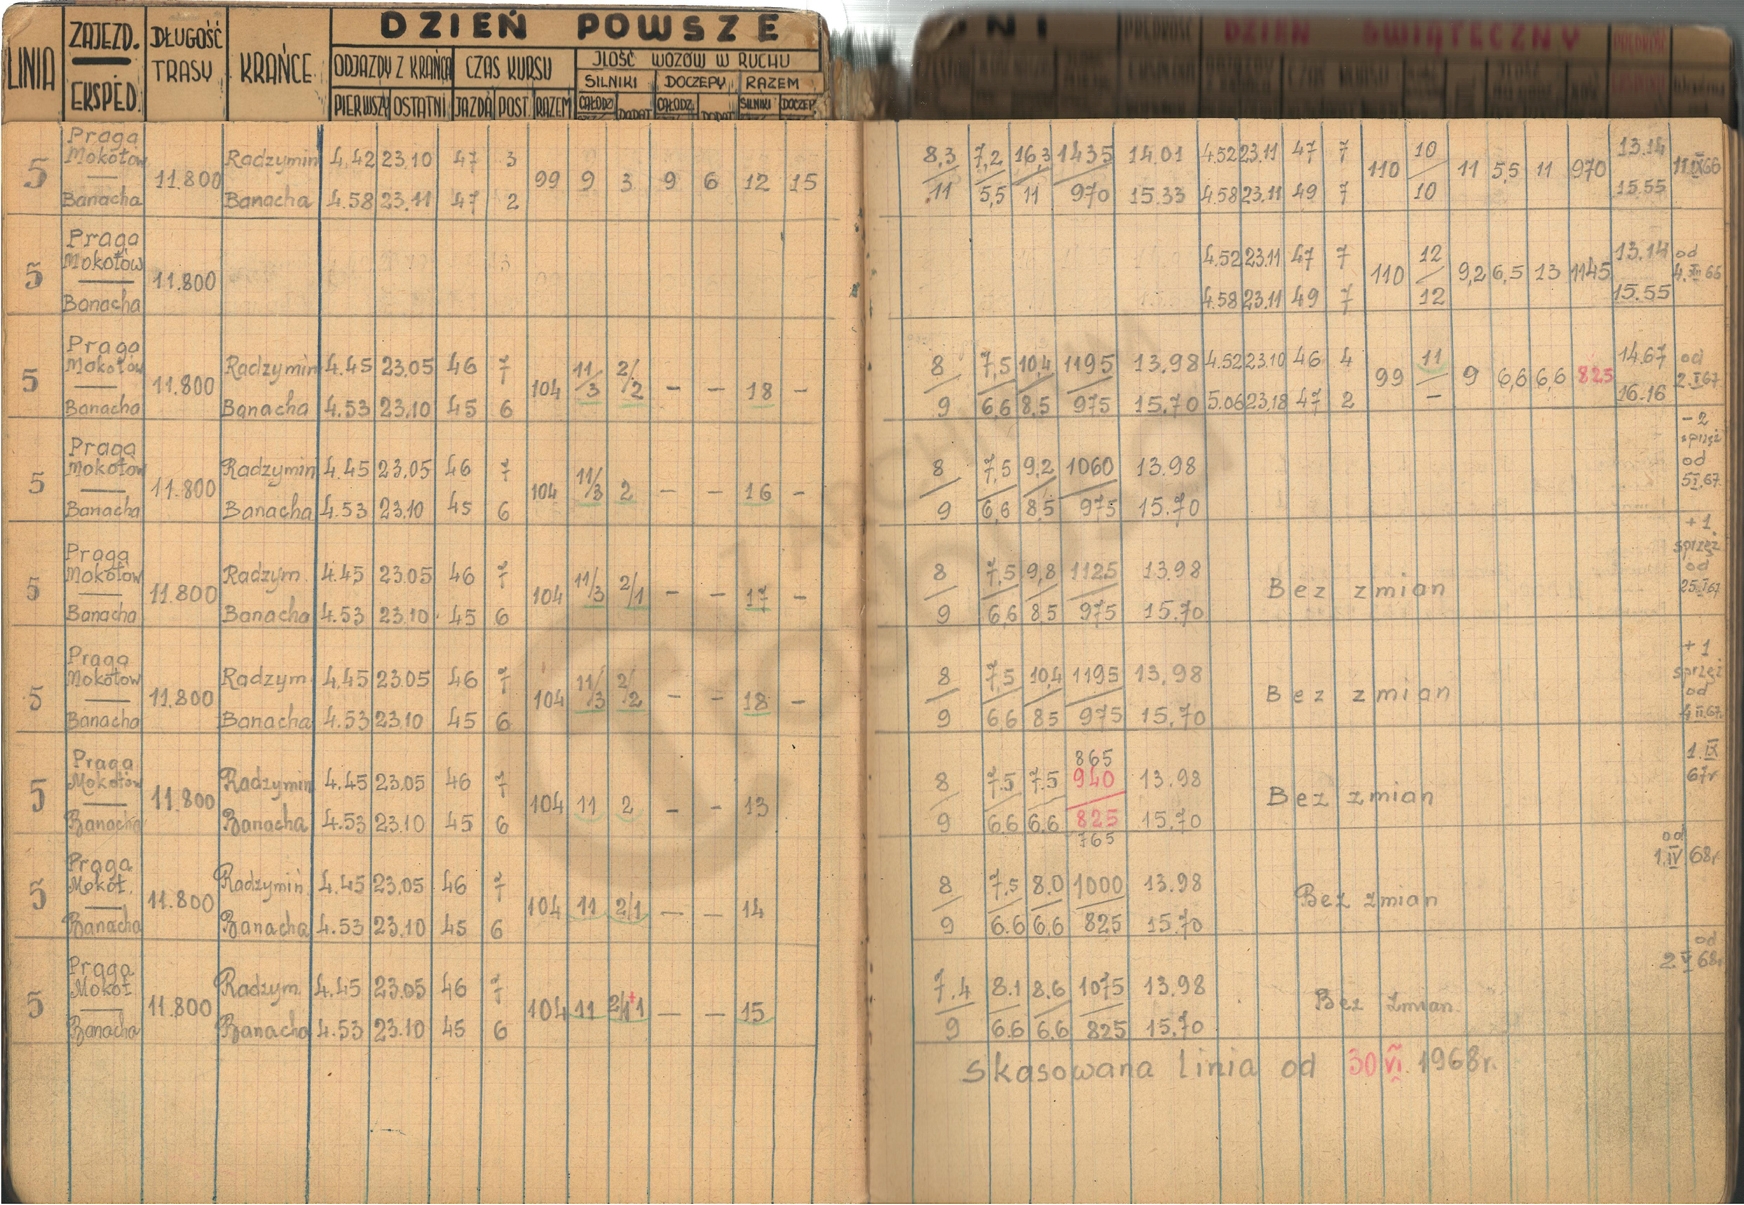 DZIEŃ POWSZE
DNI
DZIEŃ ŚWIĄTECZNY
LINIA
ZAJEZD.
EKSPED.
DŁUGOŚĆ TRASY
KRAŃCE
ODJAZDY Z KRAŃCA
CZAS KURSU
ILOŚĆ WOZÓW W RUCHU
SILNIKI DOCZEPY RAZEM
PIERWSZY OSTATNI JAZDA POST. RAZEM CAŁODZ. DODAT. CAŁODZ. DODAT. SILNIKI DOCZEP.
Praga
Mokotów Radzymin 4.42 23.10 47 3 8,3 7,2 16,3 1435 14.01 4.52 23.11 47 7 10 13.14
5 11.800 99 9 3 9 6 12 15 110 11 5,5 11 970 11.IX66
Banacha Banacha 4.58 23.11 47 2 11 5,5 11 970 15.33 4.58 23.11 49 7 10 15.55
Praga
Mokotów 4.52 23.11 47 7 12 13.14 od
5 11.800 110 9,2 6,5 13 1145 4. 66
Banacha 4.58 23.11 49 7 12 15.55
Praga
Mokotów Radzymin 4.45 23.05 46 7 11/3 2/2 8 7,5 10,4 1195 13.98 4.52 23.10 46 4 11 14.67 od
5 11.800 104 - - 18 - 99 9 6,6 6,6 825 2.I.67.
Banacha Banacha 4.53 23.10 45 6 9 6,6 8,5 975 15.70 5.06 23.18 47 2 - 16.16
- 2
sprzęż
Praga
Mokotow Radzymin 4.45 23.05 46 7 8 7,5 9,2 1060 13.98 od
5 11.800 104 11/3 2 - - 16 - 5I.67.
Banacha Banacha 4.53 23.10 45 6 9 6,6 8,5 975 15.70
+ 1
sprzęż
Praga
Mokotów Radzym. 4.45 23.05 46 7 8 7,5 9,8 1125 13.98 od
5 11.800 104 11/3 2/1 - - 17 - Bez zmian 25.I67
Banacha Banacha 4.53 23.10 45 6 9 6,6 8.5 975 15.70
+ 1
sprzęż
Praga
Mokotow Radzym. 4.45 23.05 46 7 8 7,5 10,4 1195 13.98 od
5 11.800 104 11/3 2/2 - - 18 - Bez zmian 4 II.67.
Banacha Banacha 4.53 23.10 45 6 9 6,6 8,5 975 15.70
865 1.IX
Praga
Mokotów Radzymin 4.45 23.05 46 7 8 7.5 7.5 940 13.98 67r
5 11.800 104 11 2 - - 13 Bez zmian
Banacha Banacha 4.53 23.10 45 6 9 6.6 6.6 825 15.70
765
od
1.IV 68r.
Praga
Mokot. Radzymin. 4.45 23.05 46 7 8 7.5 8.0 1000 13.98
5 11.800 104 11 2/1 - - 14 Bez zmian
Banacha Banacha 4.53 23.10 45 6 9 6.6 6,6 825 15.70
od
2 V 68r
Praga
Mokot Radzym. 4.45 23.05 46 7 7.4 8.1 8.6 1075 13.98
5 11.800 104 11 2/1+1 - - 15 Bez zmian.
Banacha Banacha 4.53 23.10 45 6 9 6.6 6,6 825 15.70
Skasowana linia od 30 VI. 1968r.